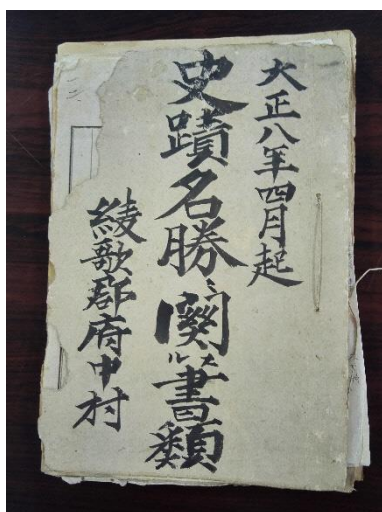 大正八年四月起
史蹟名勝ニ関スル書類
綾歌郡府中村